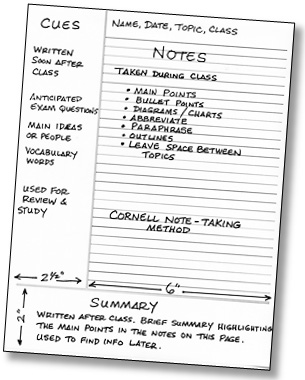 Cues
Name, Date, Topic, Class
Written
Soon after
Class
Anticipated
Exam Questions
Main Ideas
or People
Vocabulary
Words
Used for
Review &
Study
Notes
Taken during class
• Main Points
• Bullet Points
• Diagrams/Charts
• Abbreviate
• Paraphrase
• Outlines
• Leave space between
Topics
Cornell Note-Taking
Method
2½"
6"
2"
Summary
Written after class. Brief summary highlighting
the main points in the notes on this page.
Used to find info later.